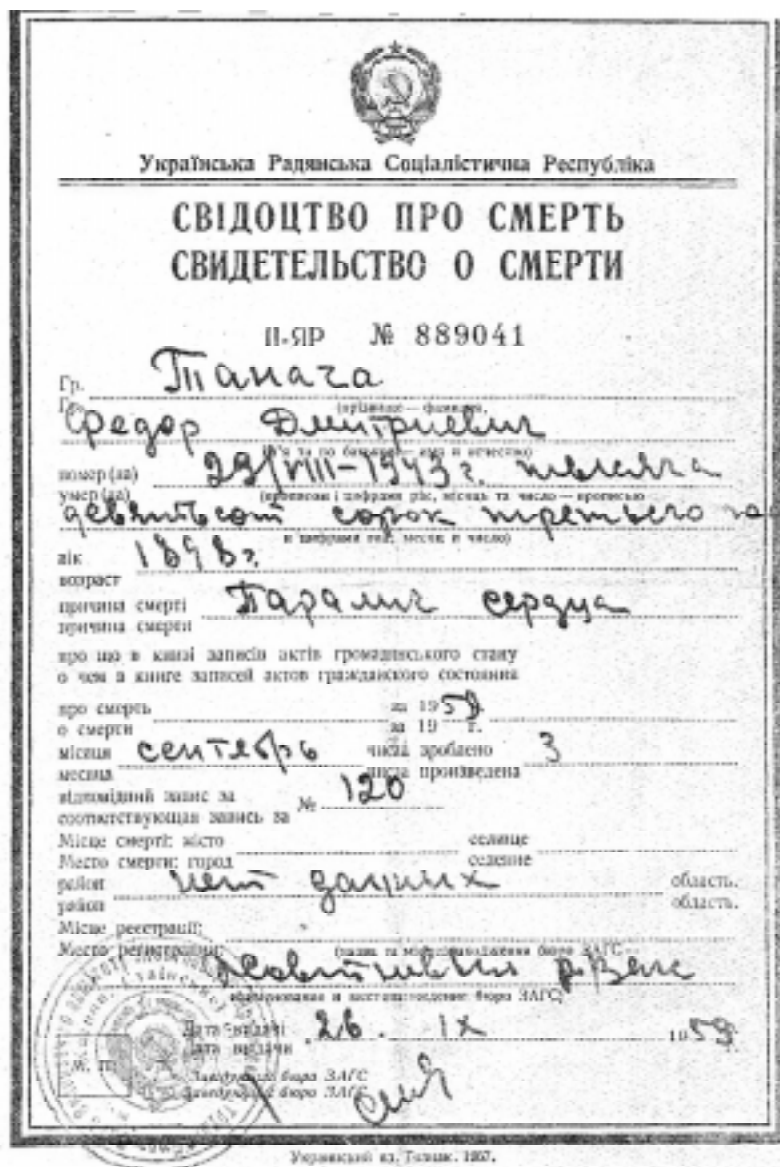 Українська Радянська Соціалістична Республіка
СВІДОЦТВО ПРО СМЕРТЬ
СВИДЕТЕЛЬСТВО О СМЕРТИ
II-ЯР № 889041
Гр. Танага
Гр. (прізвище — фамилия)
Федор Дмитриевич
(ім'я та по батькові — имя и отчество)
помер(ла) 29/VIII-1943 г. тысяча
умер(ла) (прописом і цифрами рік, місяць та число — прописью
девятьсот сорок третьего
и цифрами год, месяц и число)
вік 1898 г
возраст
причина смерті Паралич сердца
причина смерти
про що в книзі записів актів громадянського стану
о чем в книге записей актов гражданского состояния
про смерть за 1959
о смерти за 19 г.
місяця сентябрь числа зроблено 3
месяца числа произведена
відповідний запис за № 120
соответствующая запись за
Місце смерті: місто селище
Место смерти: город селение
район нет данных область.
район область.
Місце реєстрації:
Место регистрации: (назва та місцезнаходження бюро ЗАГС
наименование и местонахождение бюро ЗАГС)
Дата видачі 26. IX 1959
Дата выдачи
М. П. Завідуючий бюро ЗАГС
Заведующий бюро ЗАГС